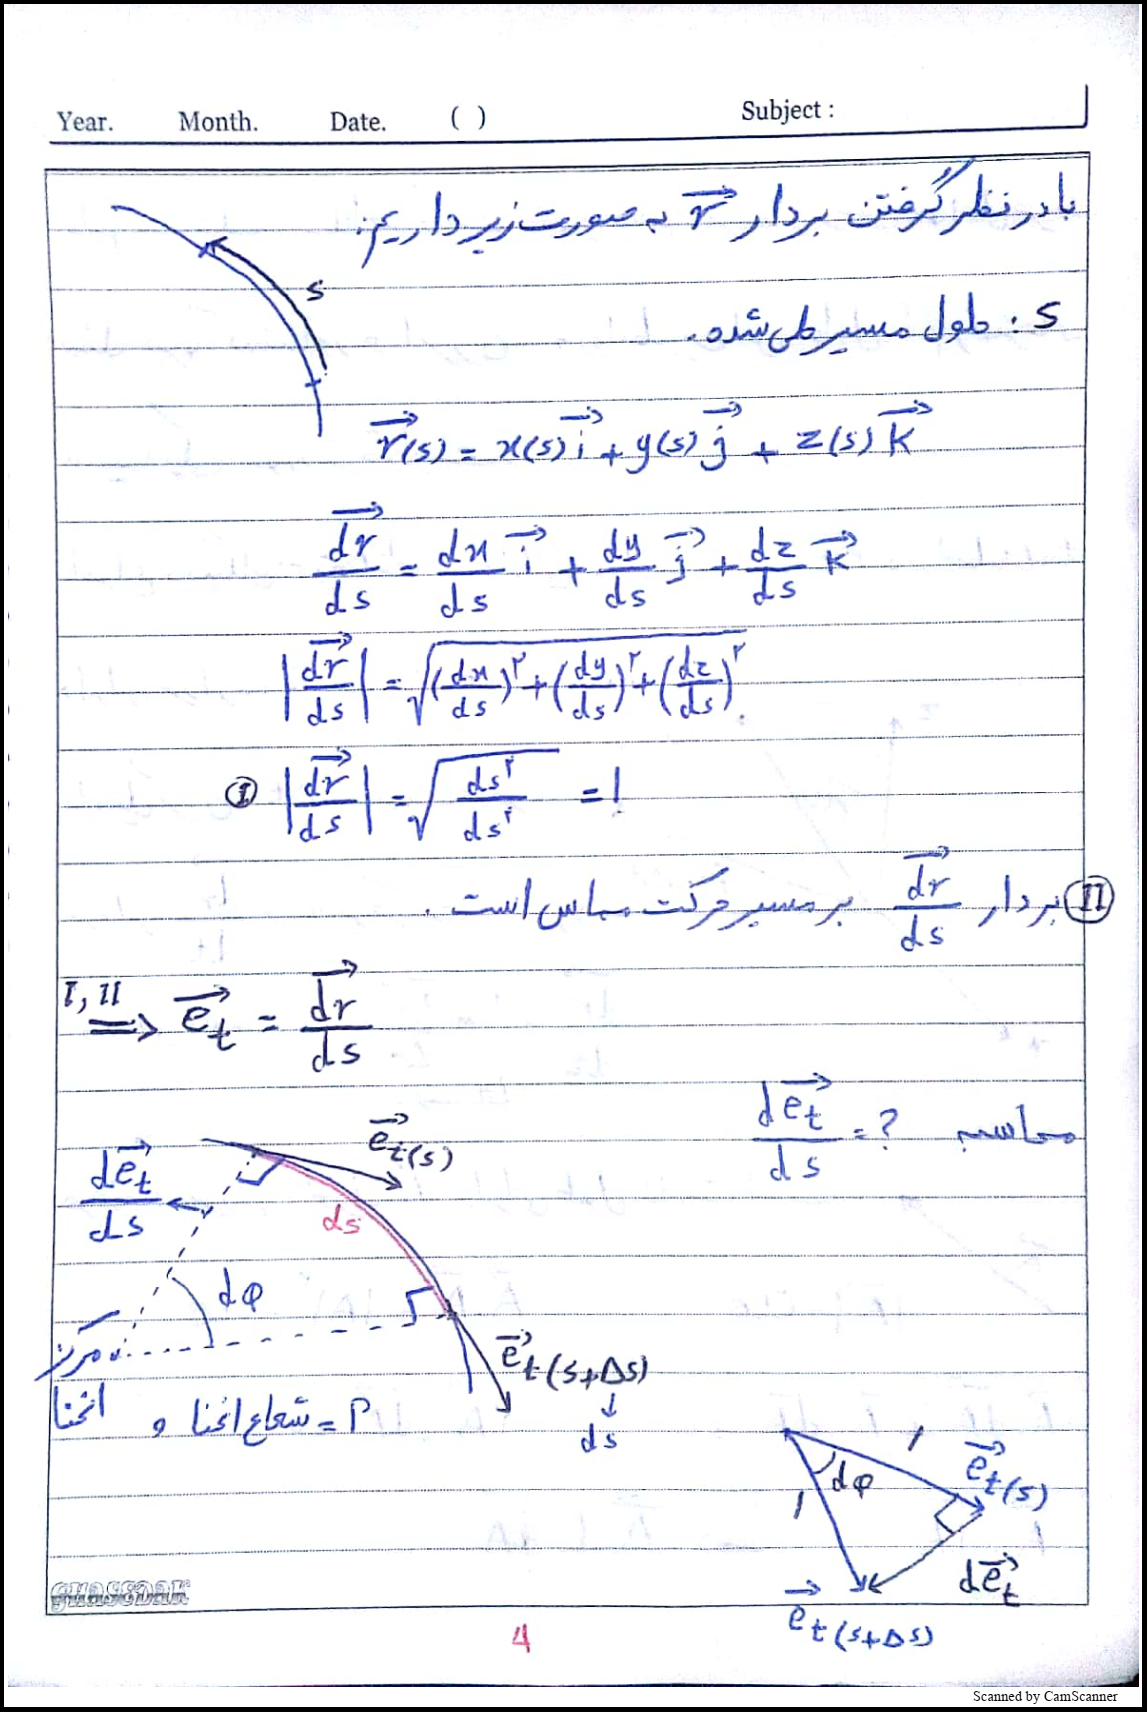 Year. Month. Date. ( ) Subject :
با در نظر گرفتن بردار r⃗ به صورت زیر داریم:
s
s : طول مسیر طی شده.
r⃗(s) = x(s) i⃗ + y(s) j⃗ + z(s) k⃗
dr⃗/ds = dx/ds i⃗ + dy/ds j⃗ + dz/ds k⃗
|dr⃗/ds| = √((dx/ds)^۲ + (dy/ds)^۲ + (dz/ds)^۲)
Ⓘ |dr⃗/ds| = √(ds^۲/ds^۲) = 1
Ⓘⓘ بردار dr⃗/ds بر مسیر حرکت مماس است.
I, II ⟹ e⃗t = dr⃗/ds
محاسبه de⃗t/ds = ?
e⃗t(s)
de⃗t/ds
ds
dφ
مرکز
انحنا
e⃗t(s+Δs)
و شعاع انحنا = ρ
ds
1
e⃗t(s)
dφ
1
de⃗t
e⃗t(s+Δs)
GHASEDAK
4
Scanned by CamScanner